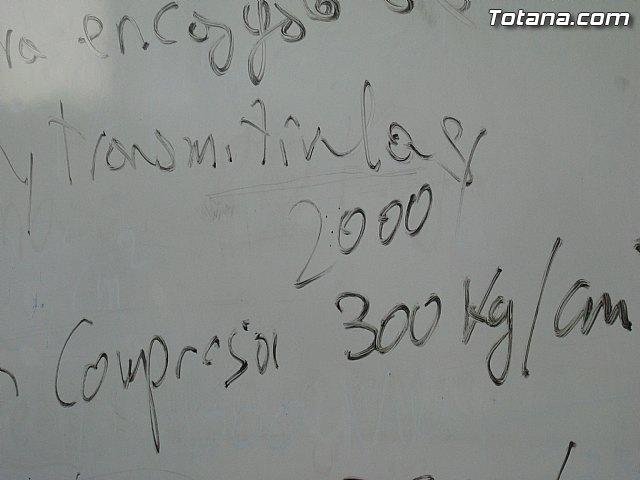 Totana.com
ra encogido
y transmitirlas
2000
Compresor 300 Kg/cm